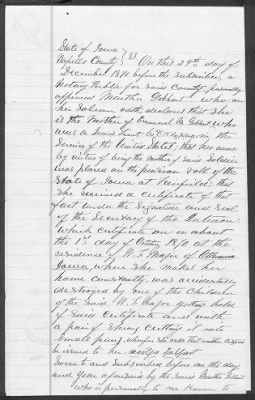 State of Iowa
Wapello County } SS. On this 29th day of
December 1870 before the subscriber, a
Notary Public for said County, personally
appeared Martha Gebhart who on
her solemn oath, declares that she
is the Mother of Emanuel M. Gebhart who
was a 
Service of the United States; that her name
by virtue of being the mother of said Soldier
was placed on the pension roll of the
State of Iowa at Fairfield; that
she received a Certificate of that
fact under the Signature and Seal
of the Secretary of the Interior:
Which certificate on or about
the 1st day of October 1870 at the
residence of W. T. Major of Ottumwa
Iowa, where she makes her
home constantly, was accidentally
destroyed by one of the Children
of the said W. T. Major getting hold
of said Certificate and with
a pair of Shears cutting it into
small pieces, wherefore she asks that another certificate
be issued to her.
Sworn to and Subscribed before me this day
and year aforesaid by the said Martha Gebhart
who is personally to me known to